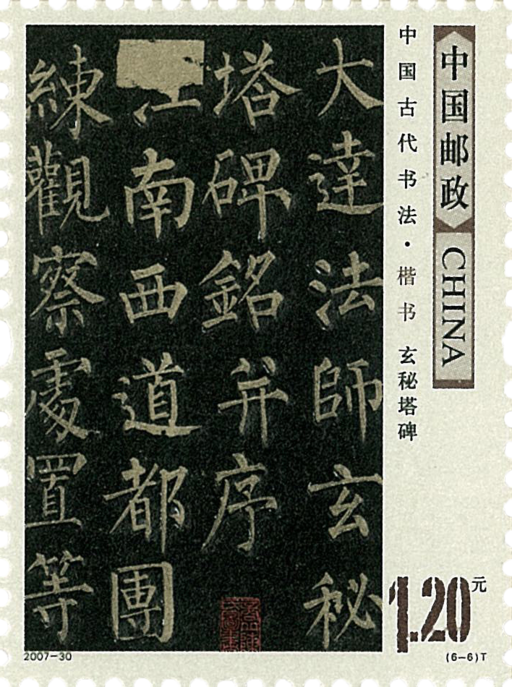 中国邮政
CHINA
中国古代书法·楷书 玄秘塔碑
大達法師玄秘
塔碑銘并序
江南西道都團
練觀察處置等
1.20元
2007-30
(6-6)T